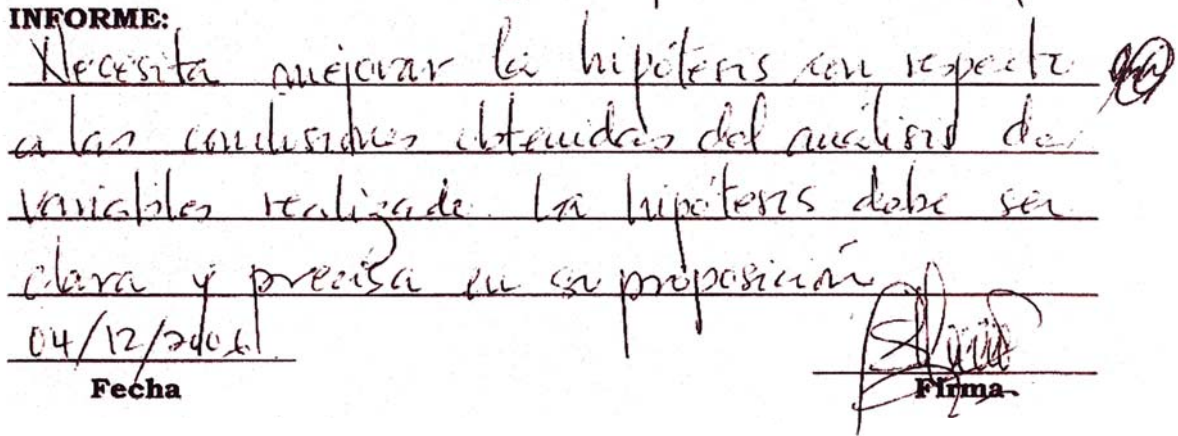 INFORME:
Necesita mejorar la hipótesis con respecto
a las conclusiones obtenidas del análisis de
variables realizado La hipótesis debe ser
clara y precisa en su proposición
04/12/2006
Fecha
Firma